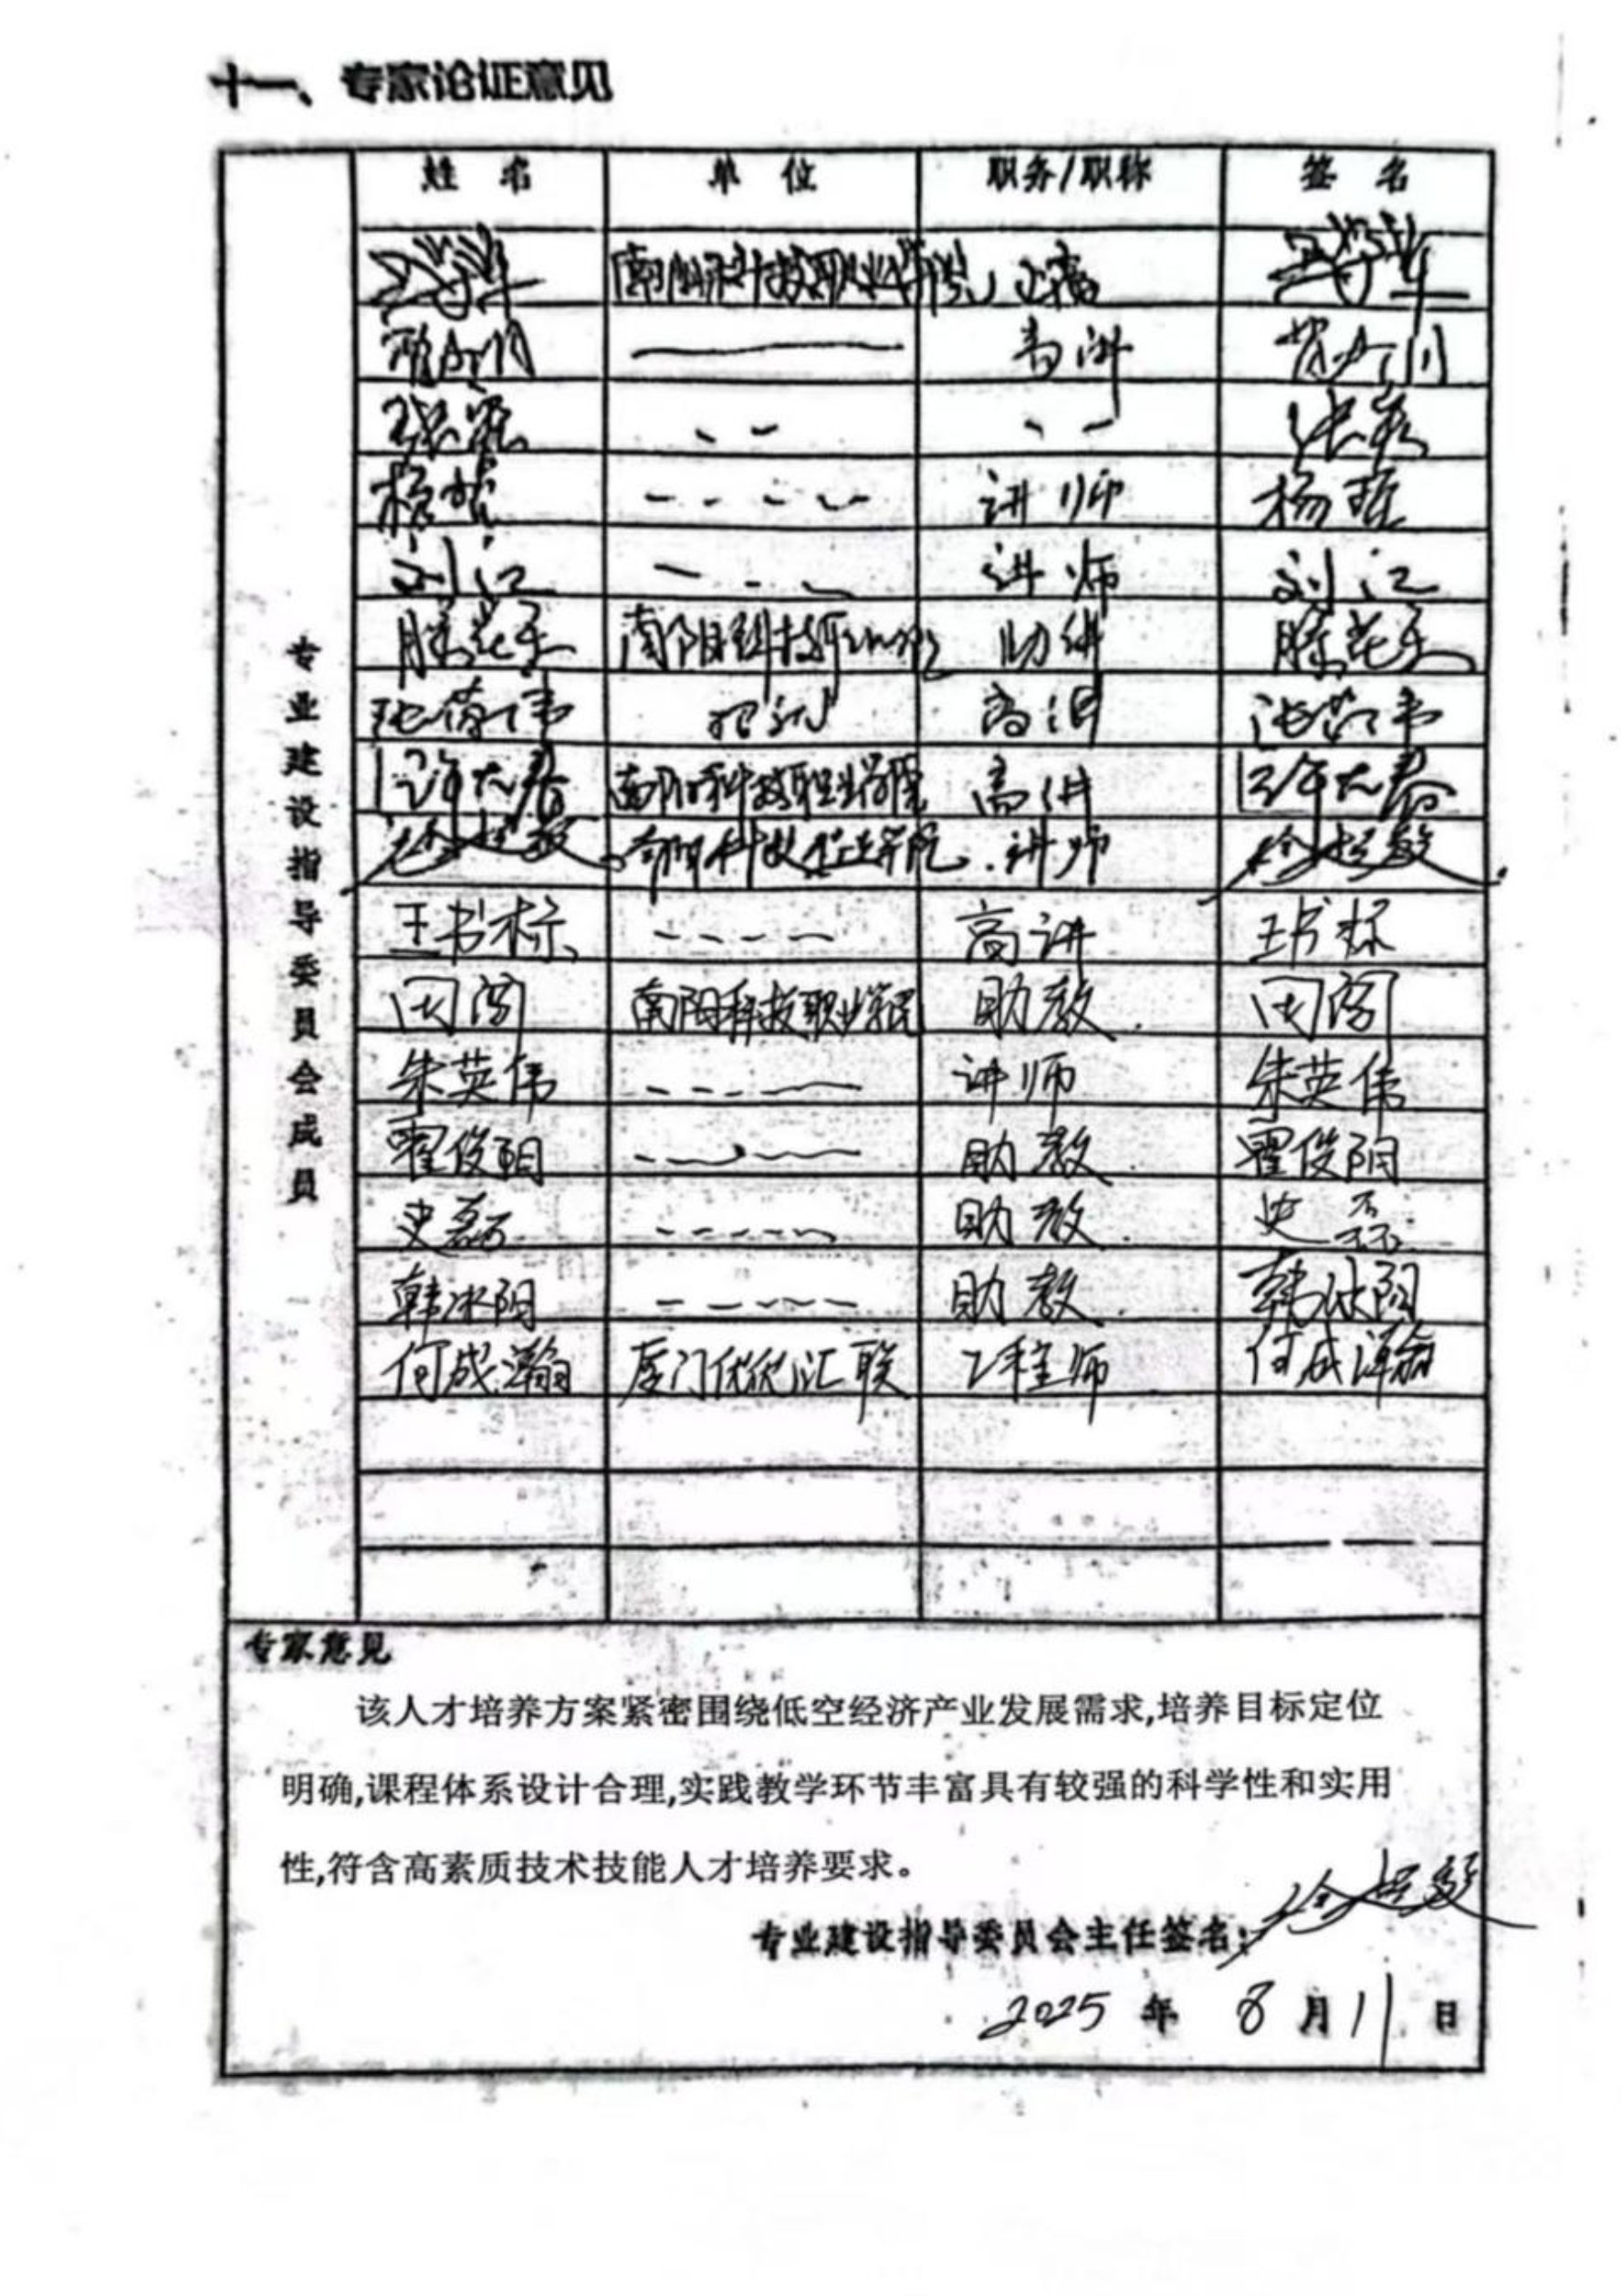 十一、专家论证意见
姓 名 单 位 职务/职称 签 名
高讲
张
杨 讲师 杨
刘江 讲师 刘江
滕 南阳科技 助讲 滕
张 高讲 张
大春 南阳科技职业学院 高讲 大春
徐超毅 南阳科技职业学院 讲师 徐超毅
王书标 高讲 王书标
田阔 南阳科技职业学院 助教 田阔
朱英伟 讲师 朱英伟
翟俊阳 助教 翟俊阳
史磊 助教 史磊
韩冰阳 助教 韩冰阳
何成瀚 厦门优优汇联 工程师 何成瀚
专业建设指导委员会成员
专家意见
该人才培养方案紧密围绕低空经济产业发展需求,培养目标定位
明确,课程体系设计合理,实践教学环节丰富具有较强的科学性和实用
性,符合高素质技术技能人才培养要求。
专业建设指导委员会主任签名: 徐超毅
2025 年 8 月 11 日